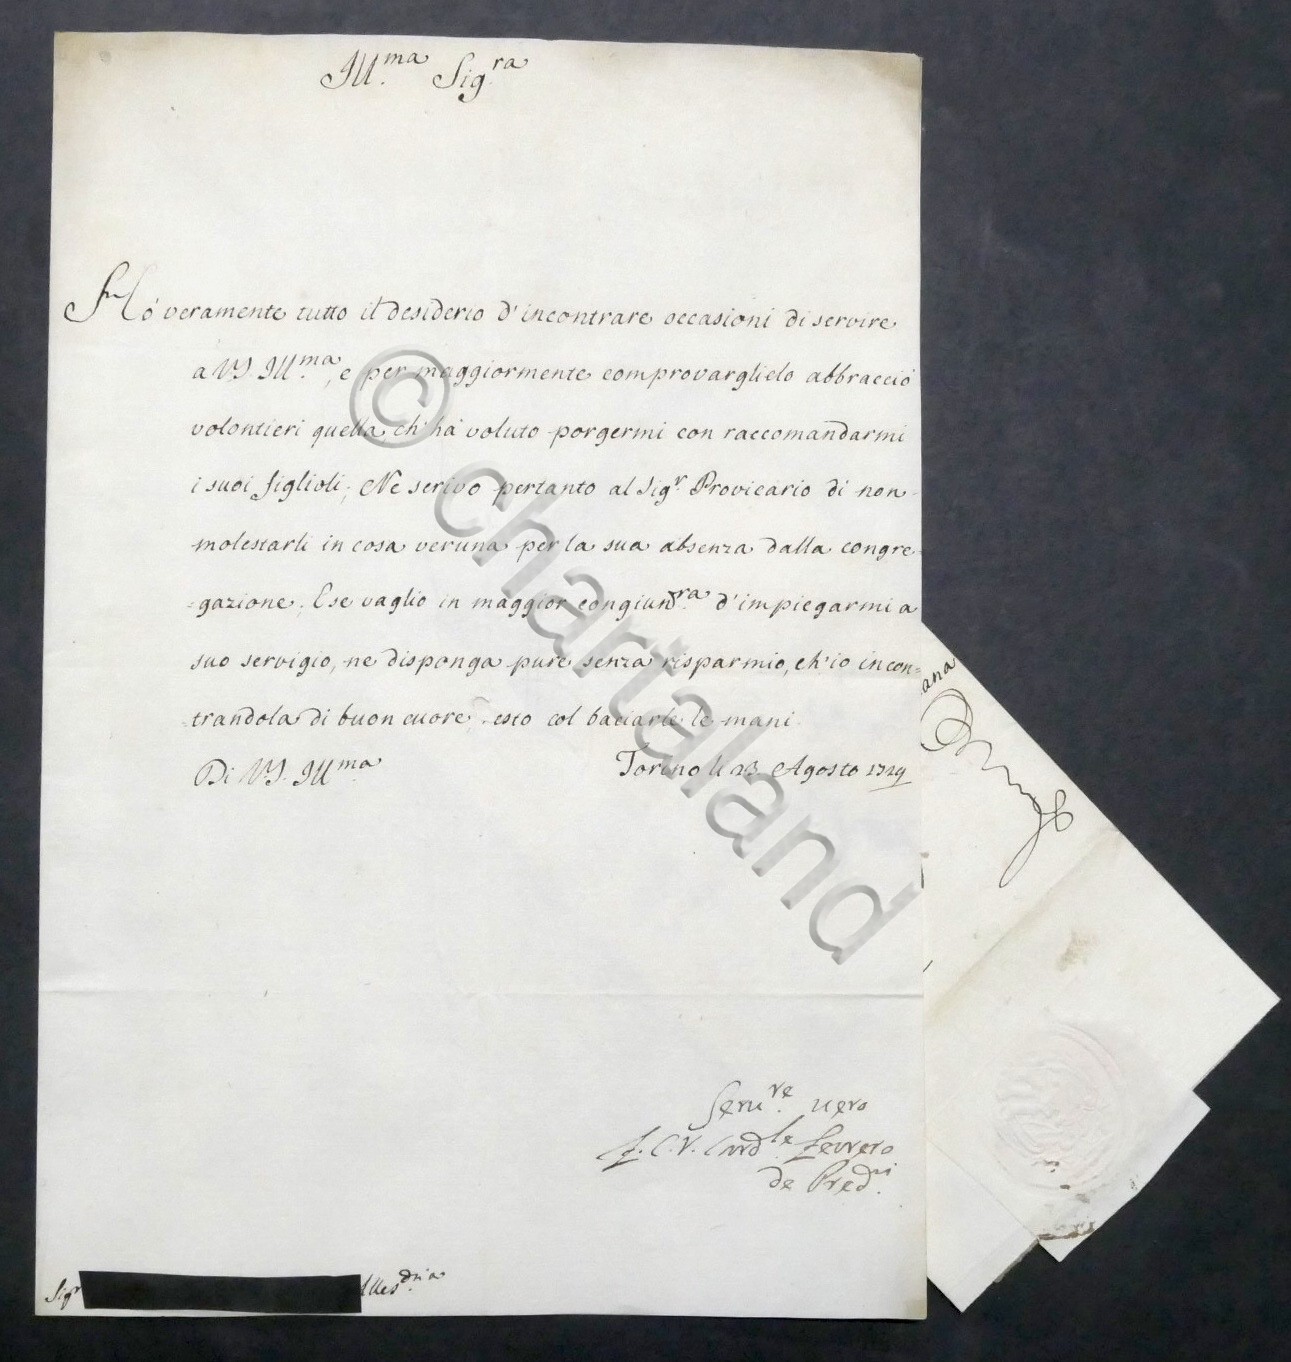 Ill.ma Sig.ra
Hò veramente tutto il desiderio d'incontrare occasioni di servire
a VS Ill.ma, e per maggiormente comprovarglielo abbracciò
volontieri quella ch'hà voluto porgermi con raccomandarmi
i suoi figlioli; Ne scrivo pertanto al Sig.r Provicario di non
molestarli in cosa veruna per la sua absenza dalla congre=
=gazione; E se vaglio in maggior congiun.ra d'impiegarmi a
suo servigio, ne disponga pure senza risparmio, ch'io incon=
trandola di buon cuore, resto col baciarle le mani
Di VS. Ill.ma Torino li 23 Agosto 1729
Seru.re uero
f. C. V. Card.le Ferrero
de Pred.ri
Sig.r Alless.dria
ana
© chartaland